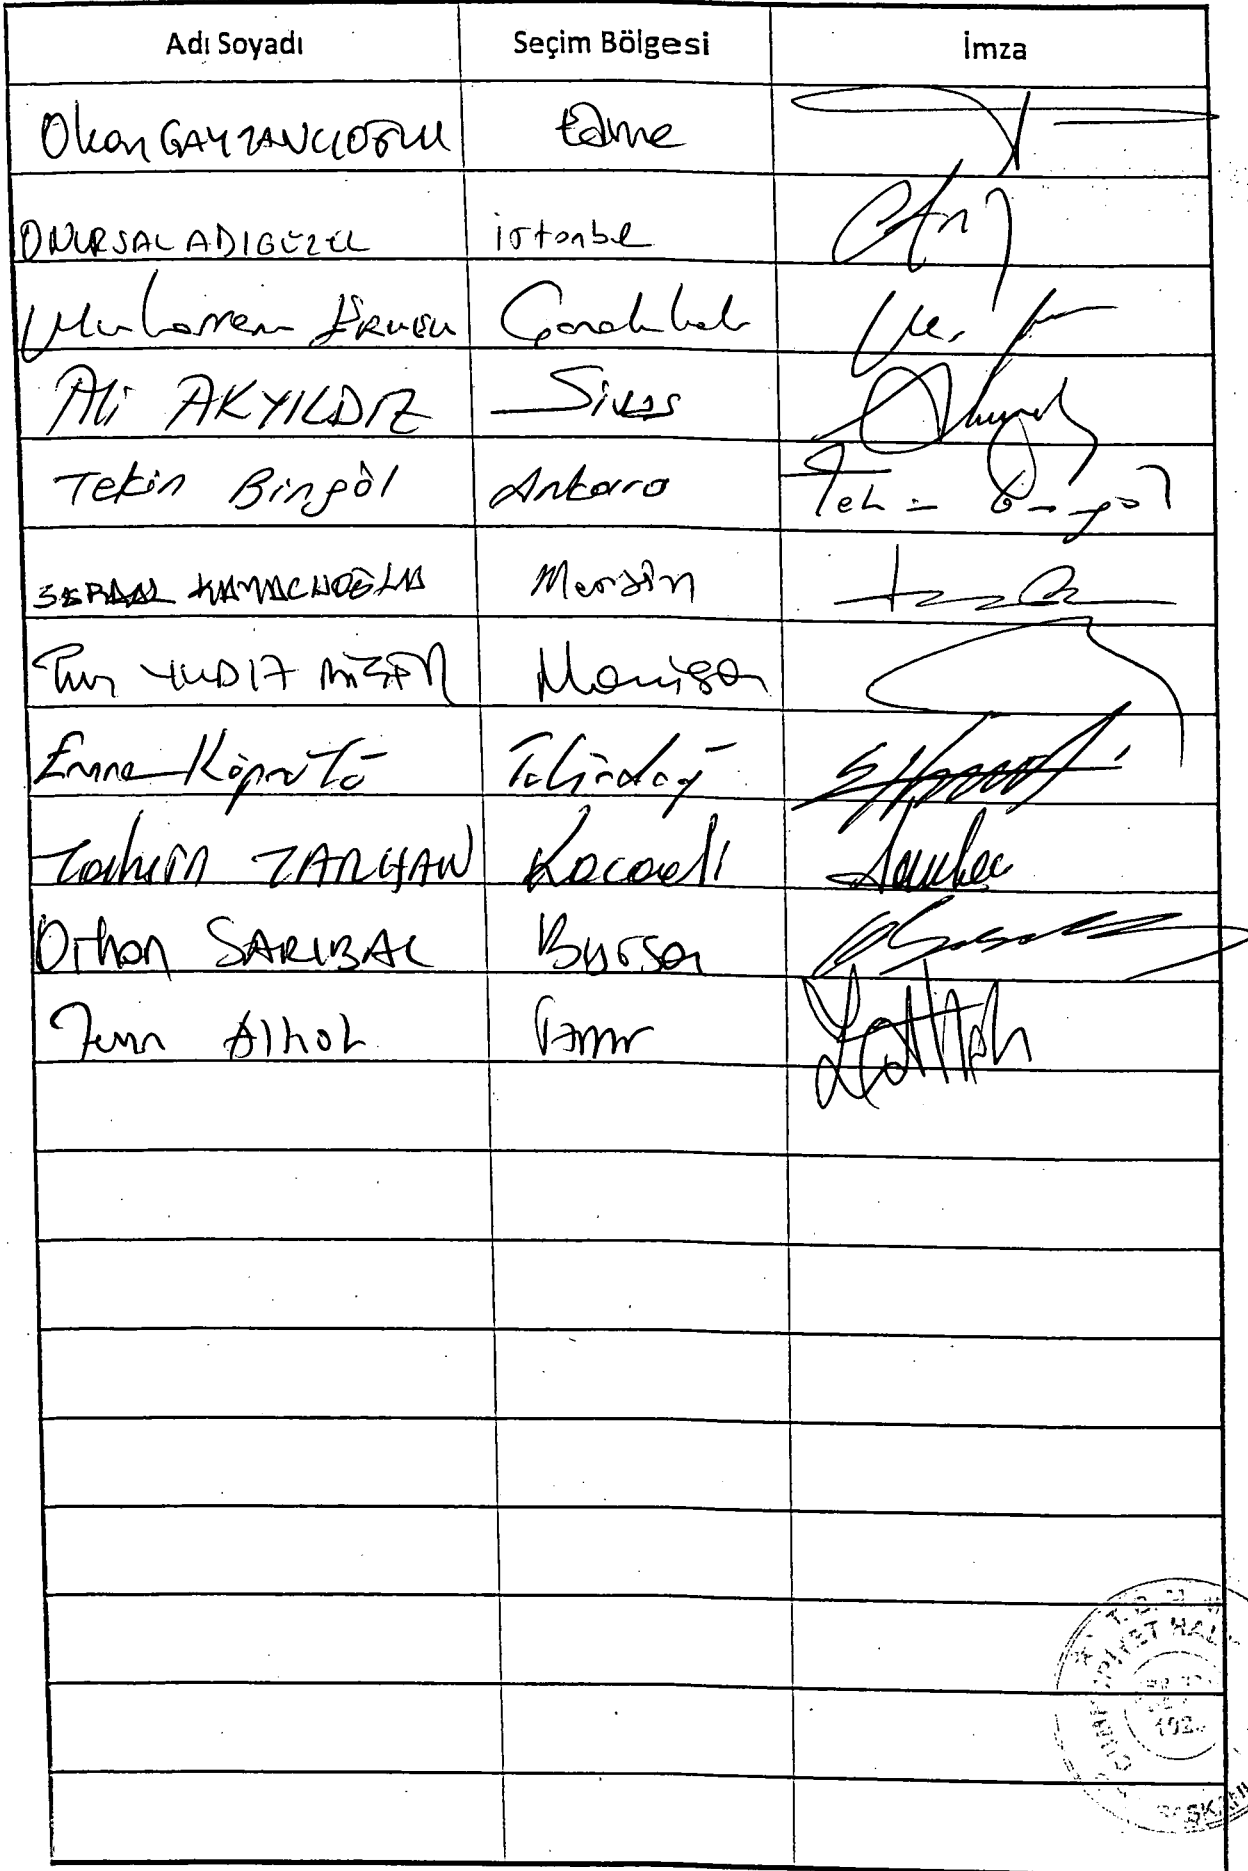 Adı Soyadı Seçim Bölgesi İmza
Okan GAYTANCIOĞLU Edirne
ONURSAL ADIGÜZEL istanbul
Muharrem ERKEK Çanakkale
Ali AKYILDIZ Sivas
Tekin Bingöl Ankara Tekin Bingöl
SERDAL KUYUCUOĞLU Mersin
Tur YILDIZ BİÇER Manisa
Emre Köprülü Tekirdağ
Tahsin TARHAN Kocaeli
Orhan SARIBAL Bursa
Zeynep Altıok İzmir
T.B.M.M.
CUMHURİYET HALK
192
BAŞKANLI